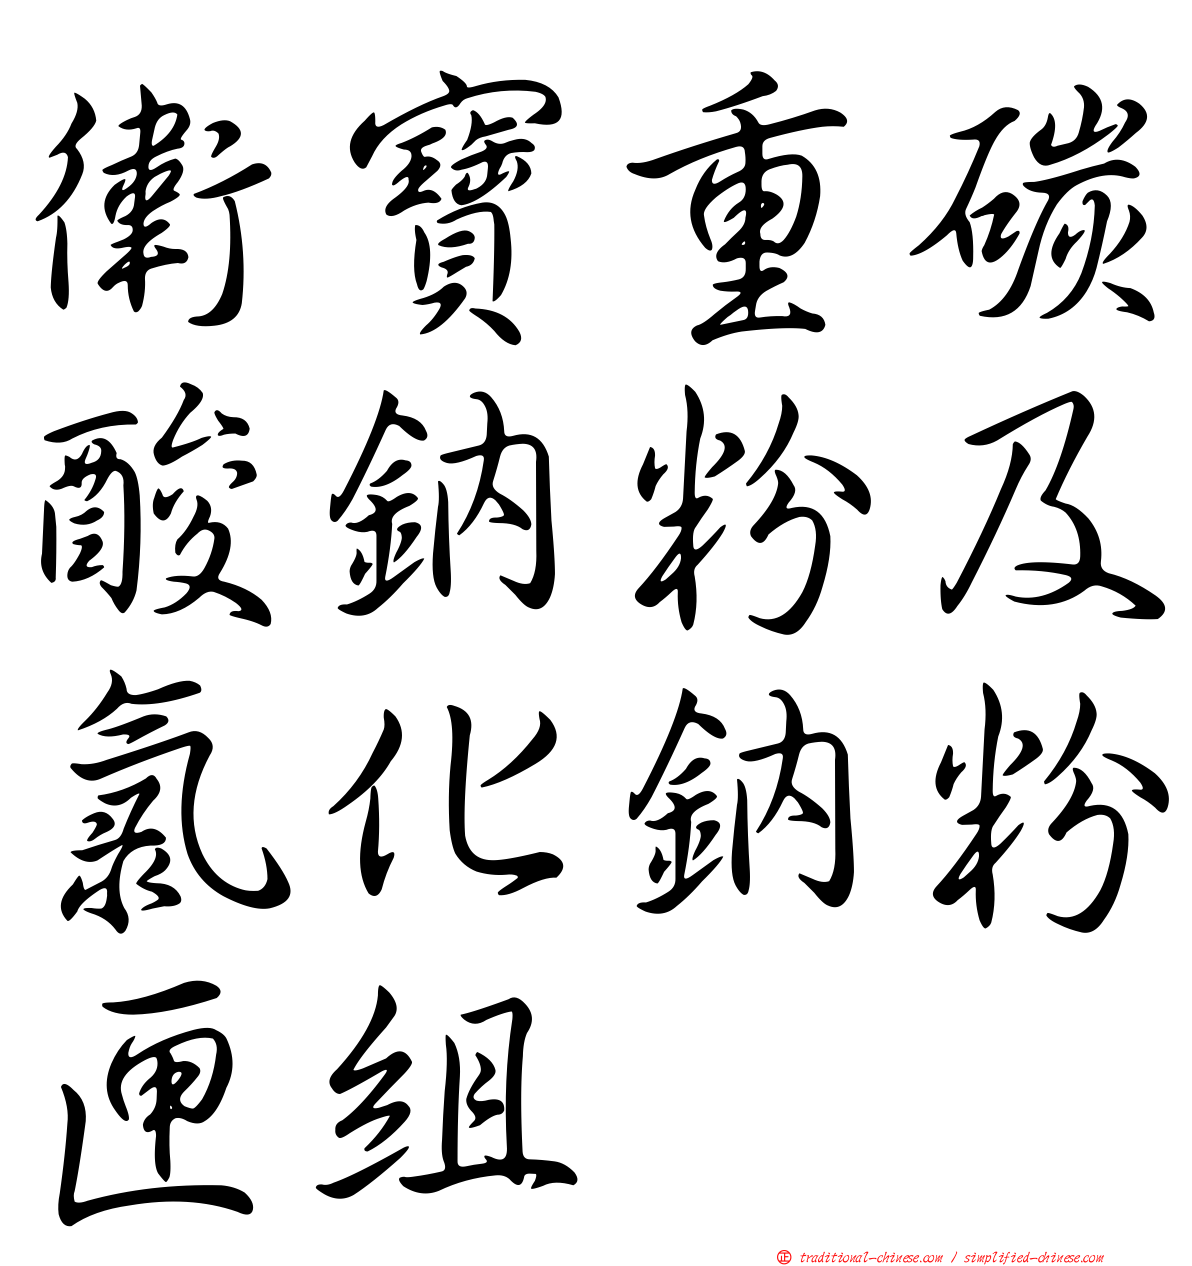 衛寶重碳
酸鈉粉及
氯化鈉粉
匣組
正 traditional-chinese.com / simplified-chinese.com